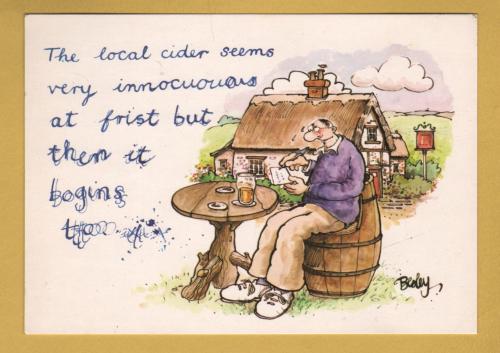 The local cider seems
very innocuouus
at frist but
then it
bogins
to
Besley